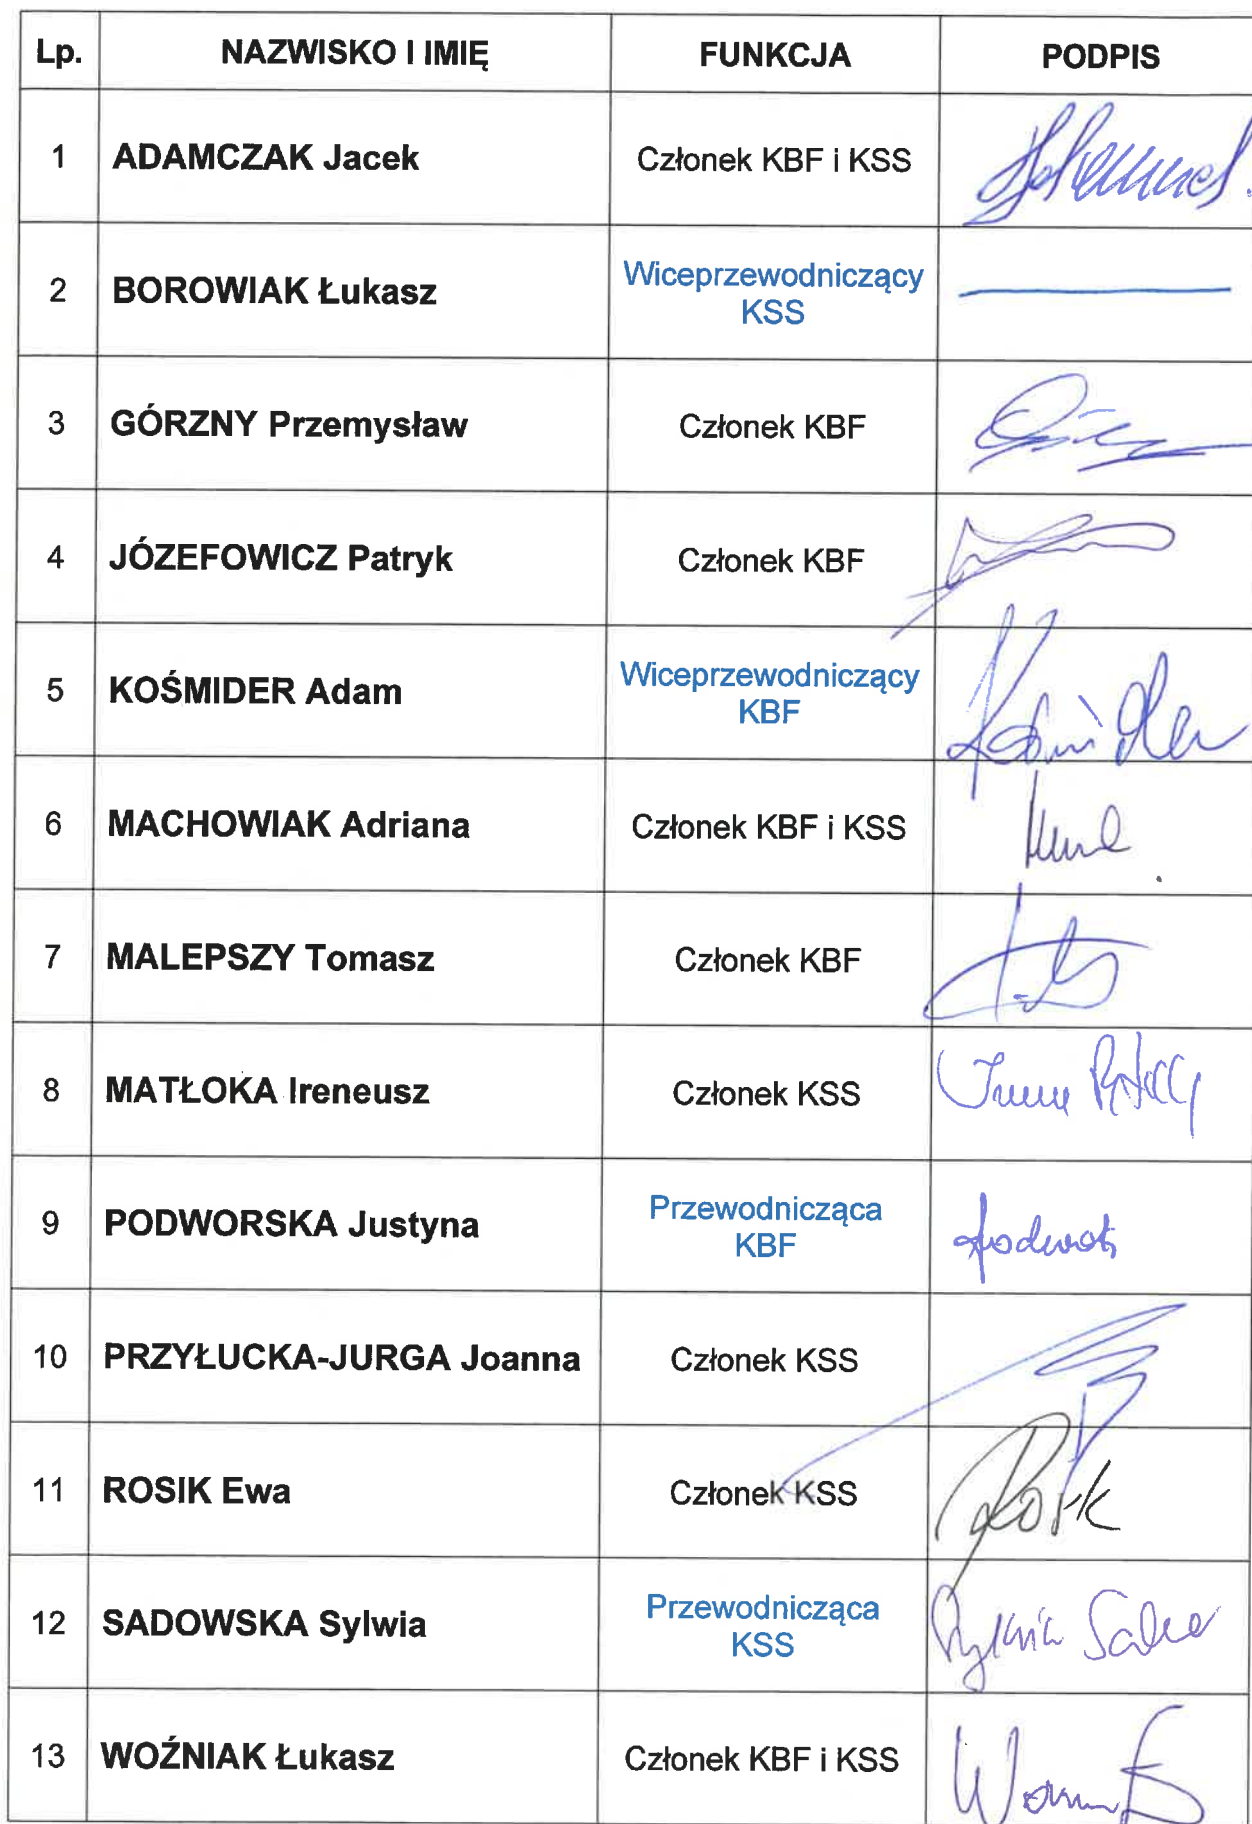 Lp. NAZWISKO I IMIĘ FUNKCJA PODPIS
1 ADAMCZAK Jacek Członek KBF i KSS
2 BOROWIAK Łukasz Wiceprzewodniczący
KSS
3 GÓRZNY Przemysław Członek KBF
4 JÓZEFOWICZ Patryk Członek KBF
5 KOŚMIDER Adam Wiceprzewodniczący
KBF
6 MACHOWIAK Adriana Członek KBF i KSS
7 MALEPSZY Tomasz Członek KBF
8 MATŁOKA Ireneusz Członek KSS
9 PODWORSKA Justyna Przewodnicząca
KBF
10 PRZYŁUCKA-JURGA Joanna Członek KSS
11 ROSIK Ewa Członek KSS
12 SADOWSKA Sylwia Przewodnicząca
KSS
13 WOŹNIAK Łukasz Członek KBF i KSS